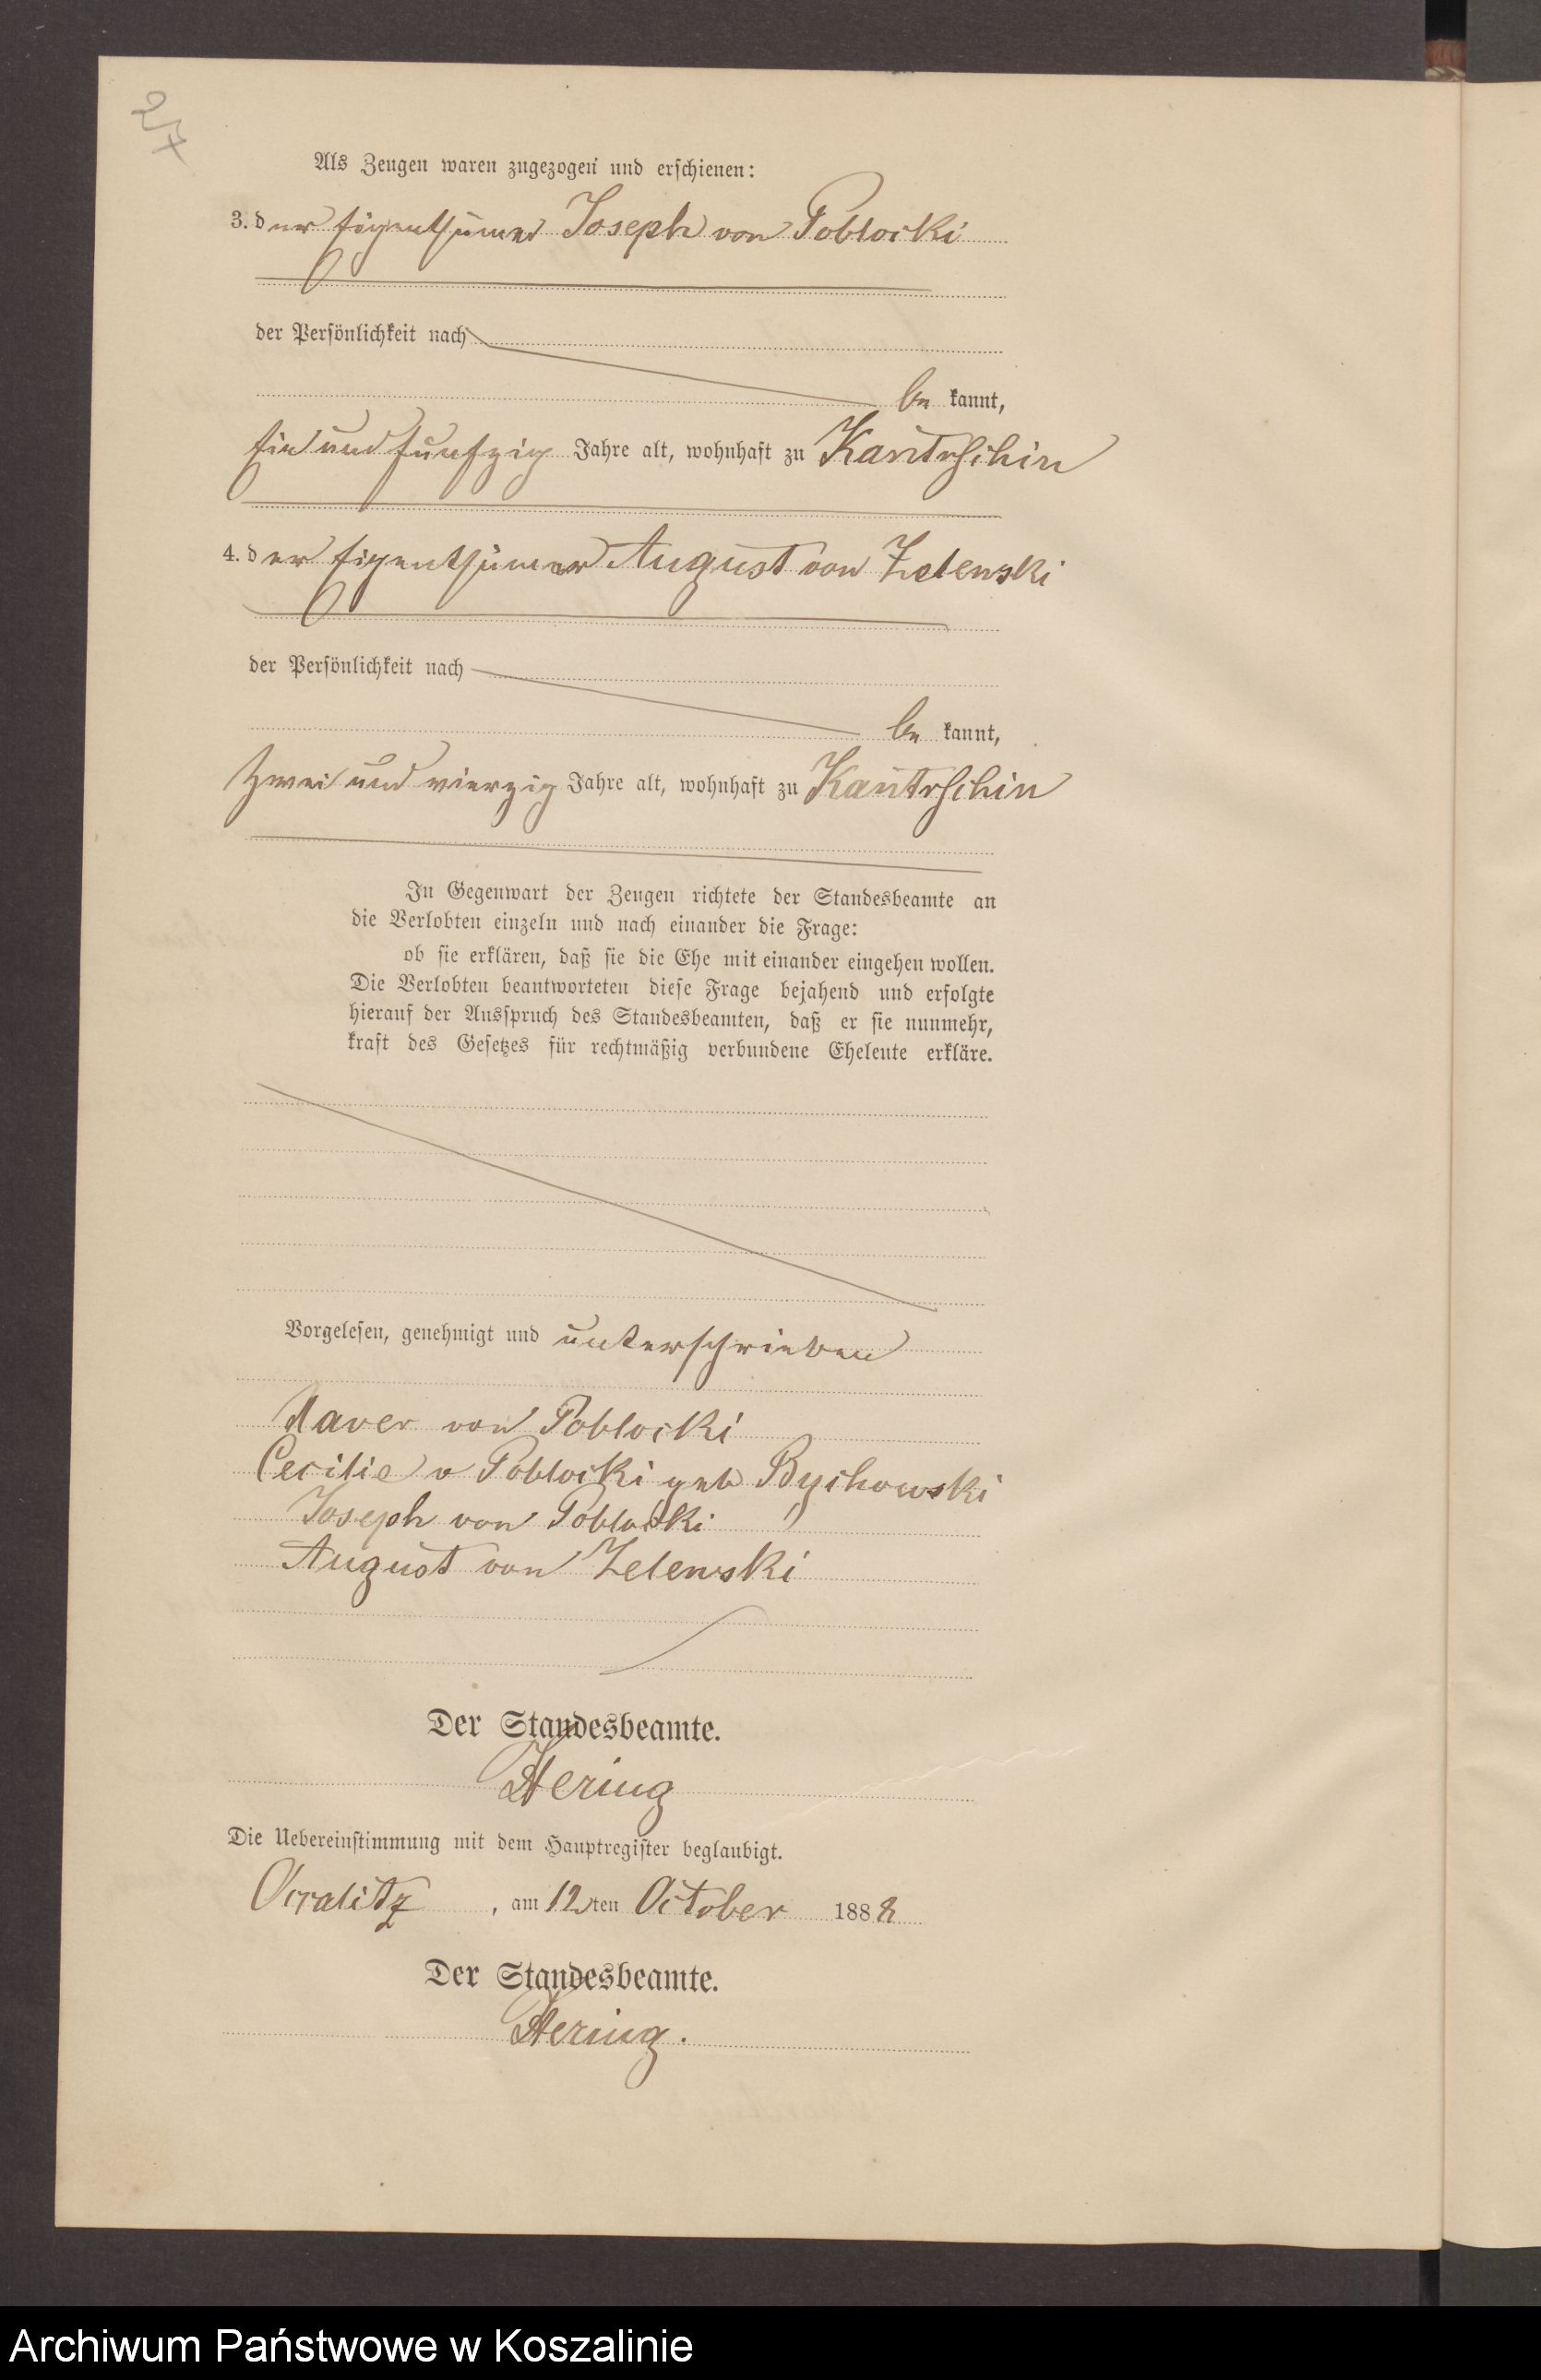 27
Als Zeugen waren zugezogen und erschienen:
3. der Eigenthümer Joseph von Poblocki
der Persönlichkeit nach
be kannt,
Ein und funfzig Jahre alt, wohnhaft zu Kantrschin
4. der Eigenthümer August von Zelenski
der Persönlichkeit nach
be kannt,
Zwei und vierzig Jahre alt, wohnhaft zu Kantrschin
In Gegenwart der Zeugen richtete der Standesbeamte an
die Verlobten einzeln und nach einander die Frage:
ob sie erklären, daß sie die Ehe mit einander eingehen wollen.
Die Verlobten beantworteten diese Frage bejahend und erfolgte
hierauf der Ausspruch des Standesbeamten, daß er sie nunmehr,
kraft des Gesetzes für rechtmäßig verbundene Eheleute erkläre.
Vorgelesen, genehmigt und unterschrieben
Xaver von Poblocki
Cecilie v Poblocki geb Bychowski
Joseph von Poblocki
August von Zelenski
Der Standesbeamte.
Hering
Die Uebereinstimmung mit dem Hauptregister beglaubigt.
Occalitz, am 12ten October 1888
Der Standesbeamte.
Hering.
Archiwum Państwowe w Koszalinie